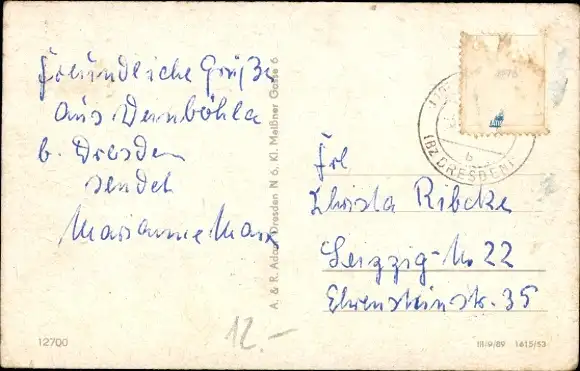 Freundliche Grüße
aus Weinböhla
b. Dresden
sendet
Marianne Marx
A. & R. Adam, Dresden N 6, Kl. Meißner Gasse 6
(BZ DRESDEN)
b
Frl
Christa Ribcke
Leipzig-N. 22
Ehrensteinstr. 35
12700
12.-
III/9/89 1615/53